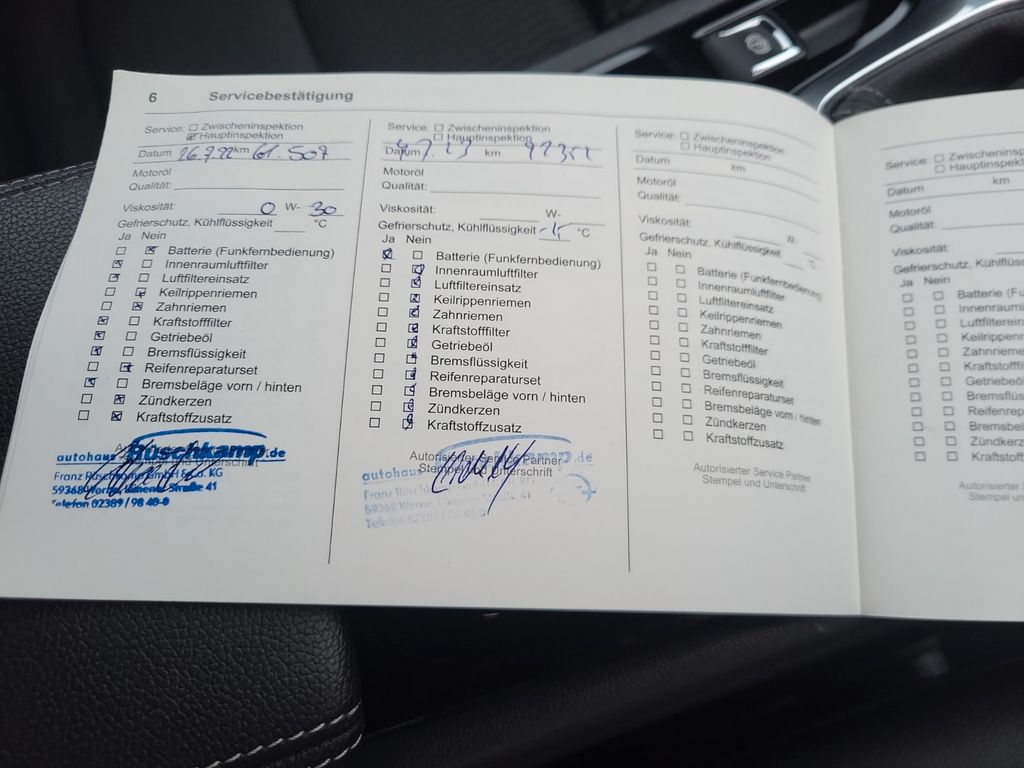 6 Servicebestätigung
Service: Zwischeninspektion
Hauptinspektion
Datum 26.7.22 km 61.507
Motoröl
Qualität:
Viskosität: 0 W- 30
Gefrierschutz, Kühlflüssigkeit °C
Ja Nein
Batterie (Funkfernbedienung)
Innenraumluftfilter
Luftfiltereinsatz
Keilrippenriemen
Zahnriemen
Kraftstofffilter
Getriebeöl
Bremsflüssigkeit
Reifenreparaturset
Bremsbeläge vorn / hinten
Zündkerzen
Kraftstoffzusatz
autohaus Rüschkamp.de
Franz Rüschkamp GmbH & Co. KG
59368 Werne, Straße 41
Telefon 02389 / 98 40-0
Service: Zwischeninspektion
Hauptinspektion
Datum km
Motoröl
Qualität:
Viskosität: W-
Gefrierschutz, Kühlflüssigkeit °C
Ja Nein
Batterie (Funkfernbedienung)
Innenraumluftfilter
Luftfiltereinsatz
Keilrippenriemen
Zahnriemen
Kraftstofffilter
Getriebeöl
Bremsflüssigkeit
Reifenreparaturset
Bremsbeläge vorn / hinten
Zündkerzen
Kraftstoffzusatz
Autorisierter Service Partner
Stempel und Unterschrift
autohaus .de
Franz
59368 Werne,
Telefon 02389 /
Service: Zwischeninspektion
Hauptinspektion
Datum km
Motoröl
Qualität:
Viskosität: W-
Gefrierschutz, Kühlflüssigkeit °C
Ja Nein
Batterie (Funkfernbedienung)
Innenraumluftfilter
Luftfiltereinsatz
Keilrippenriemen
Zahnriemen
Kraftstofffilter
Getriebeöl
Bremsflüssigkeit
Reifenreparaturset
Bremsbeläge vorn / hinten
Zündkerzen
Kraftstoffzusatz
Autorisierter Service Partner
Stempel und Unterschrift
Service: Zwischeninsp
Hauptinspekt
Datum km
Motoröl
Qualität:
Viskosität:
Gefrierschutz, Kühlflüss
Ja Nein
Batterie (Fu
Innenraumlu
Luftfilterein
Keilrippenri
Zahnriemen
Kraftstofffil
Getriebeöl
Bremsflüs
Reifenrep
Bremsbel
Zündkerz
Kraftstoff
Autorisierter
Stempel